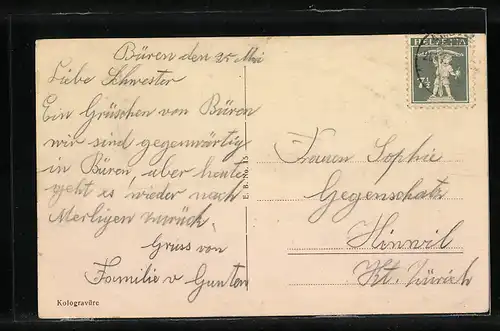 Büren den 25 Mai
Liebe Schwester
Ein Grüschen von Büren
wir sind gegenwärtig
in Büren, aber heute
geht es wieder nach
Merligen zurück.
Gruss von
Familie v Gunten
Kologravüre
E. B. No. 15
HELVETIA
7½
Frauen Sophie
Gegenschatz
Hinwil
Kt. Zürich